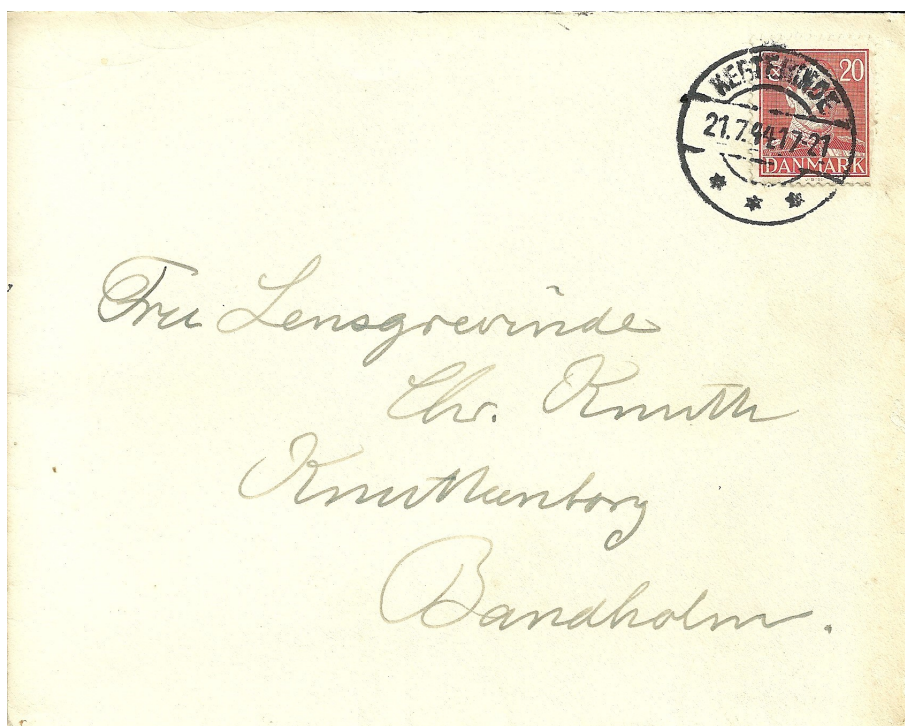 KERTEMINDE
21.7.44.17-21
20
DANMARK
Fru Lensgrevinde
Chr. Knuth
Knuthenborg
Bandholm.